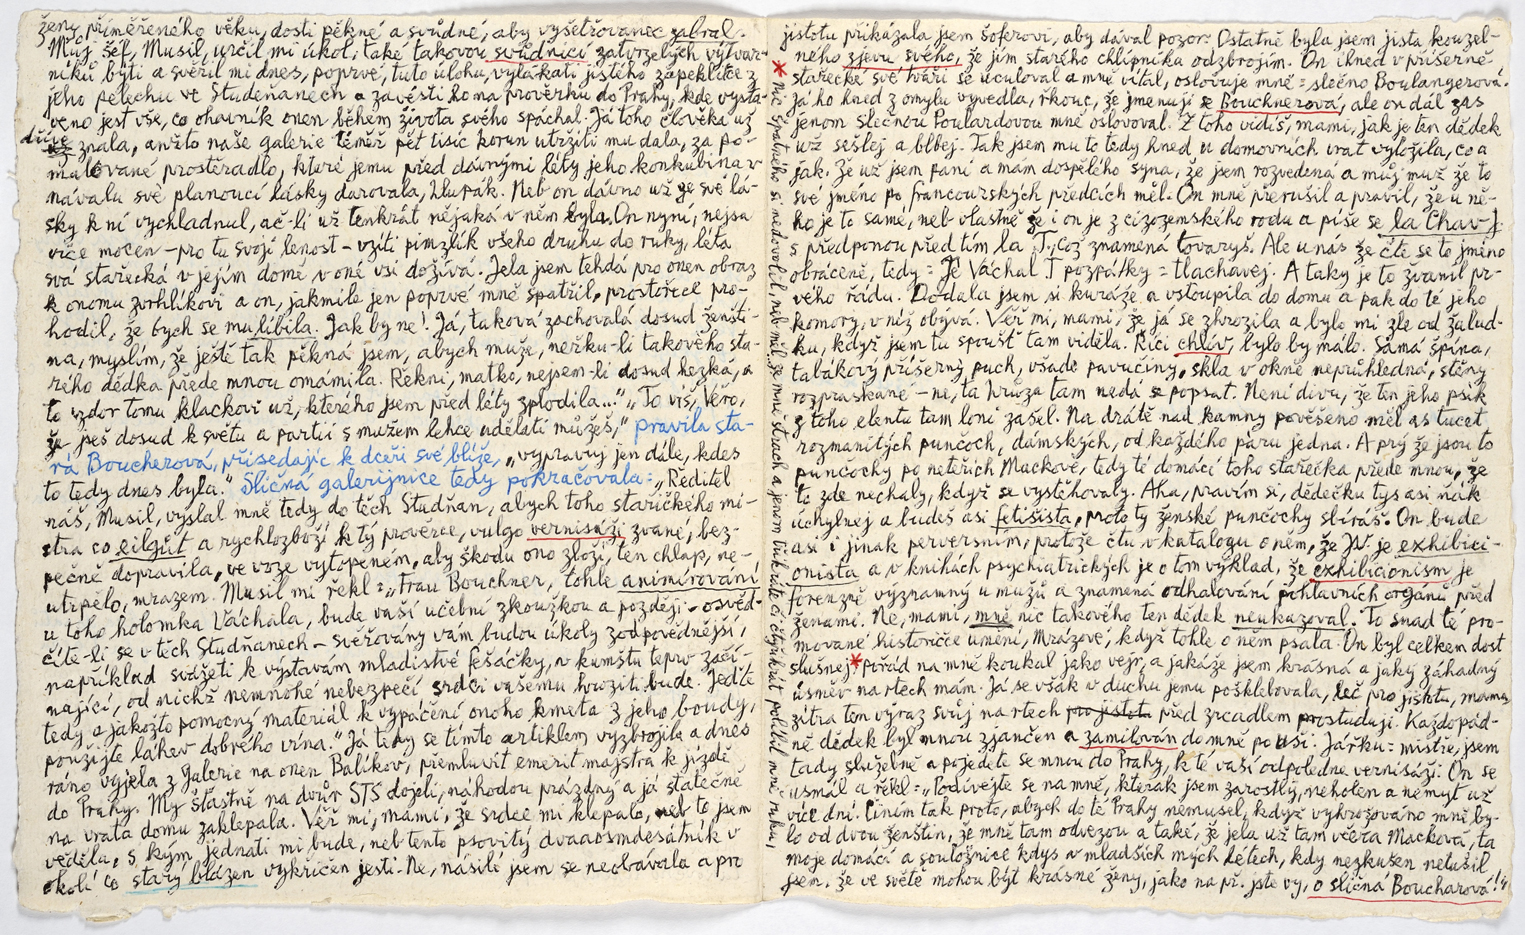 ženy přiměřeného věku, dosti pěkné a svůdné, aby vyšetřovanec zabral.
Můj šéf, Musil, určil mi úkol, také takovou svůdnicí zatvrzelých výtvar-
níků býti a svěřil mi dnes, poprvé, tuto úlohu, vylákati jistého zapeklitce z
jeho pelechu ve Studeňanech a zavésti ho na prověrku do Prahy, kde vysta-
veno jest vše, co ohavník onen během života svého spáchal. Já toho člověka už
dříve znala, anžto naše galerie téměř pět tisíc korun utržiti mu dala, za po-
malované prostěradlo, které jemu před dávnými léty jeho konkubina v
návalu své planoucí lásky darovala, hlupák. Neb on dávno už ze své lá-
sky k ní vychladnul, ač-li už tenkrát nějaká v něm byla. On nyní, nejsa
více mocen – pro tu svoji lenost – vzíti pimzlík všeho druhu do ruky, léta
svá stařecká v jejím domě v oné vsi dožívá. Jela jsem tehdá pro onen obraz
k onomu zvrhlíkovi a on, jakmile jen poprvé mně spatřil, prostořece pro-
hodil, že bych se mu líbila. Jak by ne! Já, taková zachovalá dosud ženšti-
na, myslím, že ještě tak pěkná jsem, abych muže, neřku-li takového sta-
rého dědka přede mnou omámila. Řekni, matko, nejsem-li dosud hezká, a
to vzdor tomu klackovi už, kterého jsem před léty zplodila..." „To víš, Věro,
že jseš dosud k světu a partii s mužem lehce udělati můžeš," pravila sta-
rá Boucherová, přisedajíc k dceři své blíže, „vypravuj jen dále, kdes
to tedy dnes byla." Sličná galerijnice tedy pokračovala: „Ředitel
náš, Musil, vyslal mně tedy do těch Studňan, abych toho stařičkého mi-
stra co eilgut a rychlozboží k tý prověrce, vulgo vernisáži zvané, bez-
pečně dopravila, ve voze vytopeném, aby škodu ono zboží, ten chlap, ne-
utrpělo, mrazem. Musil mi řekl: „Frau Bouchner, tohle animírování
u toho holomka Váchala, bude vaší učební zkouškou a později – osvěd-
číte-li se v těch Studňanech – svěřovány vám budou úkoly zodpovědnější,
například svážeti k výstavám mladistvé fešáčky, v kumštu teprv začí-
nající, od nichž nemnohé nebezpečí srdci vašemu hroziti bude. Jeďte
tedy a jakožto pomocný materiál k vypáčení onoho kmeta z jeho boudy,
použijte láhev dobrého vína." Já tedy se tímto artiklem vyzbrojila a dnes
ráno vyjela z Galerie na onen Balíkov, přemluvit emerit majstra k jízdě
do Prahy. My šťastně na dvůr STS dojeli, náhodou prázdný a já statečně
na vrata domu zaklepala. Věř mi, mami, že srdce mi klepalo, neb to jsem
věděla, s kým jednati mi bude, neb tento psovitý dvaaosmdesátník v
okolí co starý blázen vykřičen jesti. Ne, násilí jsem se neobávala a pro
jistotu přikázala jsem šoferovi, aby dával pozor. Ostatně byla jsem jista kouzel-
ného zjevu svého, že jím starého chlípníka odzbrojím. On ihned v příšerné
stařecké své tváři se uculoval a mně vítal, oslovuje mně = slečno Boulangerová.
Já ho hned z omylu vyvedla, řkouc, že jmenuji se Bouchnerová, ale on dál zas
jenom slečnou Poulardovou mně oslovoval. Z toho vidíš, mami, jak je ten dědek
už sešlej a blbej. Tak jsem mu to tedy hned u domovních vrat vyložila, co a
jak. Že už jsem paní a mám dospělého syna, že jsem rozvedená a můj muž že to
své jméno po francouzských předcích měl. On mně přerušil a pravil, že u ně-
ho je to samé, neb vlastně že i on je z cizozemského rodu a píše se la Chav J.
s předponou před tím la T, což znamená tovaryš. Ale u nás že čte se to jméno
obráceně, tedy = Je Váchal T pozpátky = tlachavej. A taky je to žvanil pr-
vého řádu. Dodala jsem si kuráže a vstoupila do domu a pak do té jeho
komory, v níž obývá. Věř mi, mami, že já se zhrozila a bylo mi zle od žalud-
ku, když jsem tu spoušť tam viděla. Říci chlív, bylo by málo. Samá špína,
tabákový příšerný puch, všade pavučiny, skla v okně neprůhledná, stěny
rozpraskané – ne, ta hrůza tam nedá se popsat. Není divu, že ten jeho psík
z toho elentu tam loni zašel. Na drátě nad kamny pověšeno měl as tucet
rozmanitých punčoch, dámských, od každého páru jedna. A prý že jsou to
punčochy po neteřích Mackové, tedy té domácí toho stařečka přede mnou, že
to zde nechaly, když se vystěhovaly. Aha, pravím si, dědečku tys asi ňák
úchylnej a budeš asi fetišista, proto ty ženské punčochy sbíráš. On bude
asi i jinak perversním, protože čtu v katalogu o něm, že JV. je exhibici-
onista a v knihách psychiatrických je o tom výklad, že exhibicionism je
forenzně významný u mužů a znamená odhalování pohlavních orgánů před
ženami. Ne, mami, mně nic takového ten dědek neukazoval. To snad té pro-
mované historičce umění, Mrázové, když tohle o něm psala. On byl celkem dost
slušnej* Pořád na mně koukal jako vejr, a jakáže jsem krásná a jaký záhadný
úsměv na rtech mám. Já se však v duchu jemu pošklebovala, leč pro jistotu, mama,
zítra ten výraz svůj na rtech pro jistotu před zrcadlem prostuduji. Každopád-
ně dědek byl mnou zjančen a zamilován do mně po uši. Jářku = mistře, jsem
tady služebně a pojedete se mnou do Prahy, k té vaší odpolední vernisáži. On se
usmál a řekl = „Podívejte se na mně, kterak jsem zarostlý, neholen a nemyt už
více dní. Činím tak proto, abych do té Prahy nemusel, když vyhrožováno mně by-
lo od dvou ženštin, že mně tam odvezou a také, že jela už tam včera Macková, ta
moje domácí a souložnice kdys v mladších mých létech, kdy nezkušen netušil
jsem, že ve světě mohou být krásné ženy, jako na př. jste vy, o sličná Boucharová!"
* Nic špatného si nedovolil, neb měl ze mně strach a jenom třikráte či čtyřikrát políbil mně ruku,